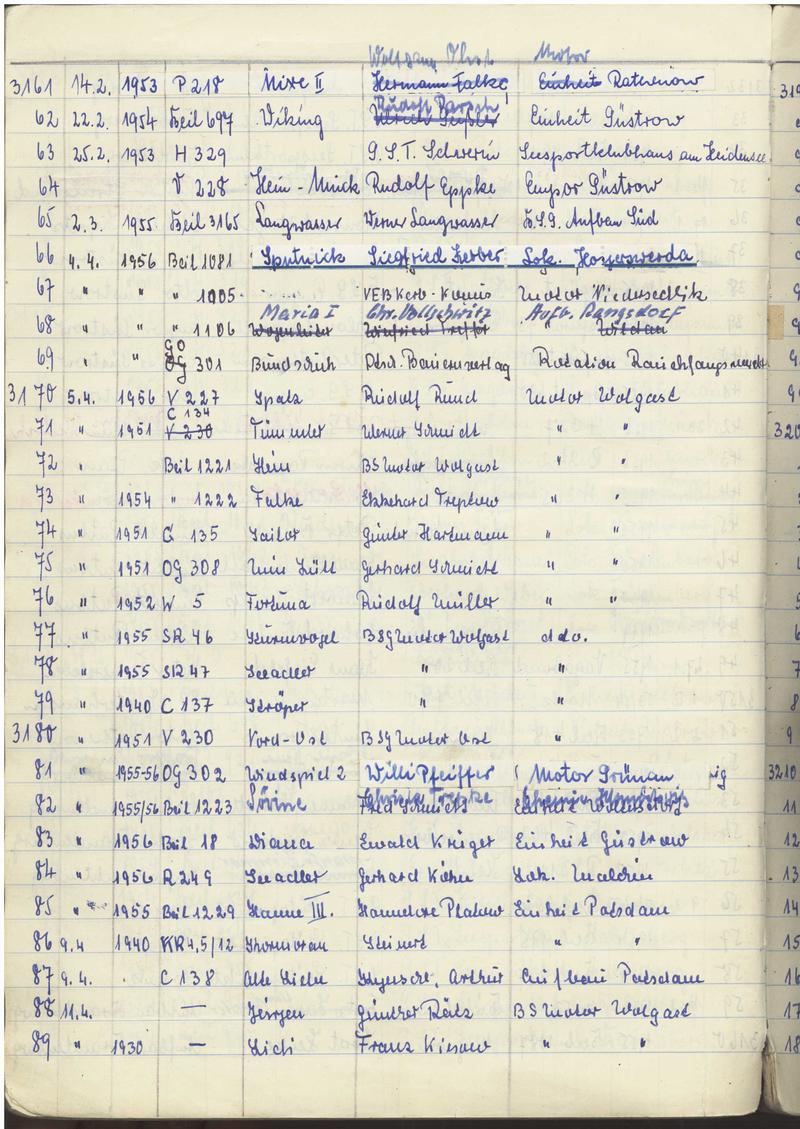 Wolfgang Motor
3161 14.2. 1953 P 218 Nixe II Hermann Falke Einheit Ratenow
62 22.2. 1954 Beil 697 Wiking Rudolf Einheit Güstrow
63 25.2. 1953 H 329 G.S.T. Schwerin Seesportklubhaus am Heidensee
64 V 228 Hein-Mück Rudolf Eppke Empor Güstrow
65 2.3. 1955 Beil 3165 Langwasser Werner Langwasser B.S.G. Aufbau Süd
66 4.4. 1956 Beil 1081 Sputnick Siegfried Lok. Hoyerswerda
67 " " " 1005 VEB Motor Niedersedlitz
Maria I Chr. Vollschwitz Aufb. Rangsdorf
68 " " " 1106 Winfried
GO
69 " " OG 301 Bundschuh Dtsch. Bauernverlag Rotation
3170 5.4. 1956 V 227 Spatz Rudolf Rund Motor Wolgast
C 134
71 " 1951 V 230 Tümmler Werner Schmidt " "
72 " Beil 1221 Hein BS Motor Wolgast " "
73 " 1954 " 1222 Falke Ekkehard Treptow " "
74 " 1951 C 135 Sailor Günter Hartmann " "
75 " 1951 OG 308 Min Lütt Gerhard Schmidt " "
76 " 1952 W 5 Fortuna Rudolf Müller " "
77 " 1955 SR 46 Sturmvogel BSG Motor Wolgast dto.
78 " 1955 SR 47 Seeadler " "
79 " 1940 C 137 Ströper " "
3180 " 1951 V 230 Nord-Ost BSG Motor Ost "
81 " 1955-56 OG 302 Windspiel 2 Willi Pfeiffer Motor Grünau ig
82 " 1955/56 Beil 1223 Fred Schmidt
83 " 1956 Beil 18 Diana Ewald Krüger Einheit Güstrow
84 " 1956 R 249 Seeadler Gerhard Kühn Lok. Malchin
85 " 1955 Beil 1229 Hanne III. Hannelore Platow Einheit Potsdam
86 9.4 1940 KR 4,5/12 Kormoran Steinert " "
87 9.4. C 138 Alte Liebe Arthur Aufbau Potsdam
88 11.4. — Jürgen Günther Rätz BS Motor Wolgast
89 " 1930 — Lidi Franz Kiesow " "
319
320
6
7
8
9
3210
11
12
13
14
15
16
17
18